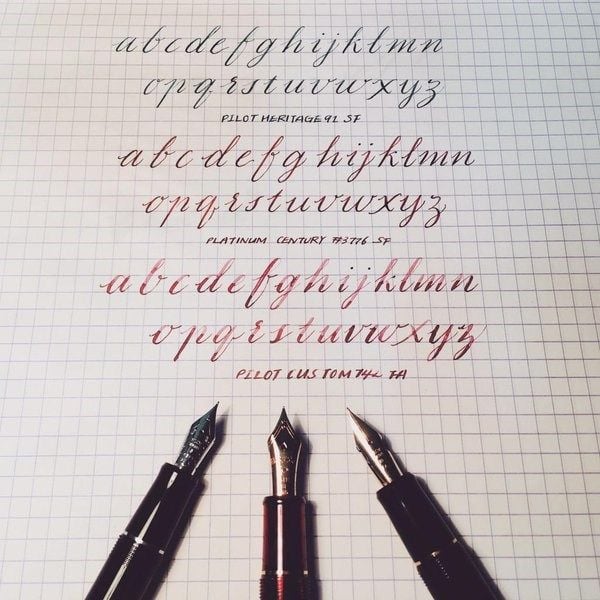 abcdefghijklmn
opqrstuvwxyz
PILOT HERITAGE 92 SF
abcdefghijklmn
opqrstuvwxyz
PLATINUM CENTURY #3776 SF
abcdefghijklmn
opqrstuvwxyz
PILOT CUSTOM 742 FA